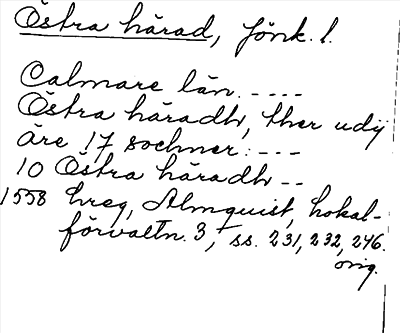 Östra härad, Jönk. l.
Calmare län. ----
Östra häradh, ther udij
äre 17 sochner: ---
10 Östra häradh --
1558 hreg, Almquist, Lokal-
förvaltn. 3, ss. 231, 232, 246.
orig.